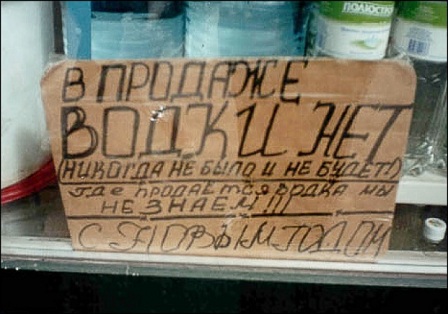 ПОЛЮСТРО
В ПРОДАЖЕ
ВОДКИ НЕТ
(НИКОГДА НЕ БЫЛО И НЕ БУДЕТ!)
где продаётся водка мы
НЕ ЗНАЕМ
С НОВЫМ ГОДОМ